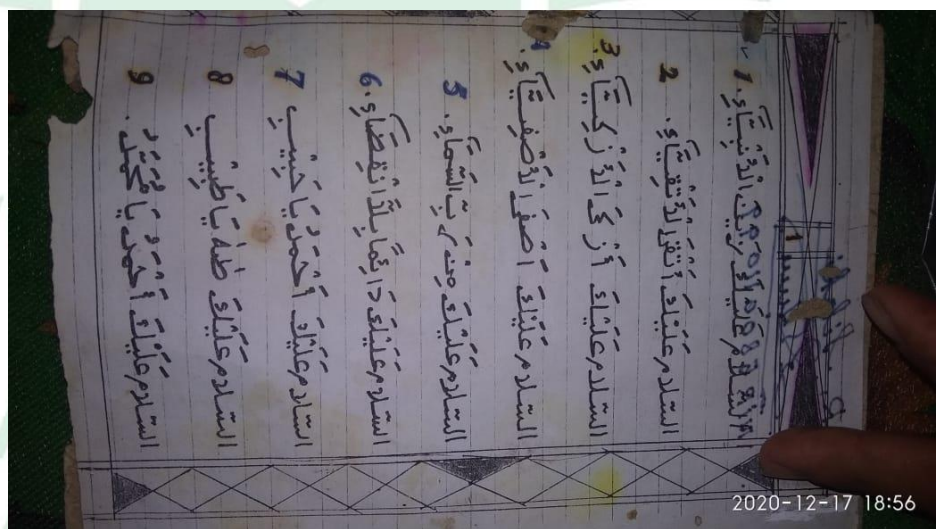 السلام عليك زين الأنبياء. 1
السلام عليك أتقى الأتقياء. 2
السلام عليك أزكى الأزكياء. 3
السلام عليك أصفى الأصفياء.
السلام عليك من رب السماء. 5
السلام عليك دائما بلا انقضاء. 6
السلام عليك أحمد يا حبيب 7
السلام عليك طه يا طبيب 8
السلام عليك أحمد يا محمد. 9
2020-12-17 18:56